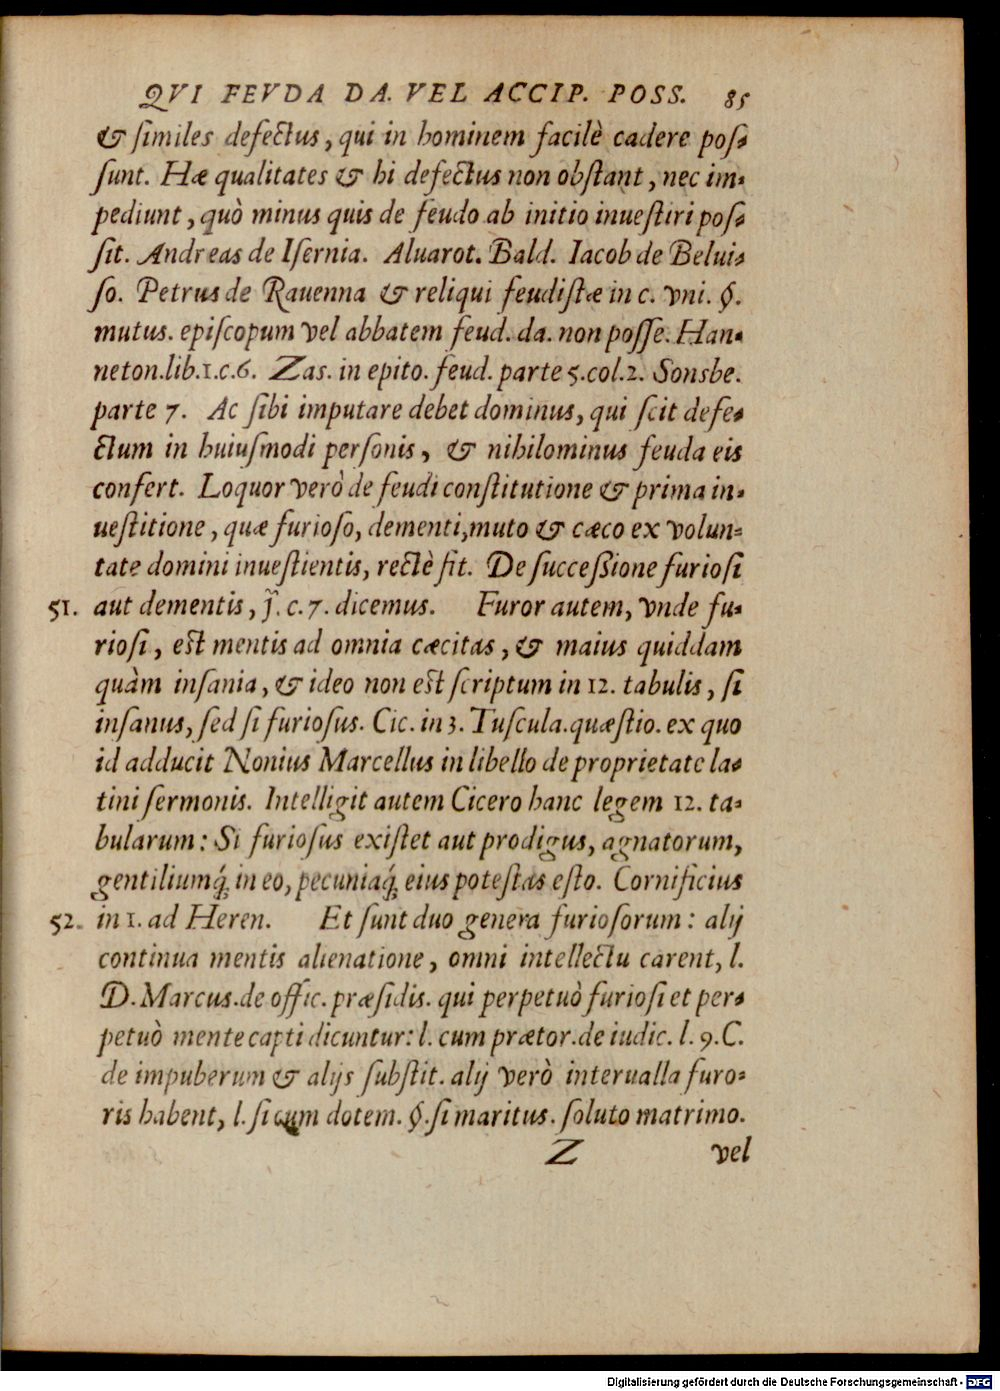 QVI FEVDA DA. VEL ACCIP. POSS. 85
& ſimiles defectus, qui in hominem facilè cadere poſ-
ſunt. Hæ qualitates & hi defectus non obſtant, nec im-
pediunt, quò minus quis de feudo ab initio inueſtiri poſ-
ſit. Andreas de Iſernia. Aluarot. Bald. Iacob de Belui-
ſo. Petrus de Rauenna & reliqui feudiſtæ in c. vni. §.
mutus. epiſcopum vel abbatem feud. da. non poſſe. Han-
neton.lib.1.c.6. Zas. in epito. feud. parte 5.col.2. Sonsbe.
parte 7. Ac ſibi imputare debet dominus, qui ſcit defe-
ctum in huiuſmodi perſonis, & nihilominus feuda eis
confert. Loquor verò de feudi conſtitutione & prima in-
ueſtitione, quæ furioſo, dementi,muto & cæco ex volun-
tate domini inueſtientis, rectè fit. De ſucceßione furioſi
51. aut dementis, j̃. c. 7. dicemus. Furor autem, vnde fu-
rioſi, est mentis ad omnia cæcitas, & maius quiddam
quàm inſania, & ideo non est ſcriptum in 12. tabulis, ſi
inſanus, ſed ſi furioſus. Cic. in 3. Tuſcula.quæſtio. ex quo
id adducit Nonius Marcellus in libello de proprietate la-
tini ſermonis. Intelligit autem Cicero hanc legem 12. ta-
bularum: Si furioſus exiſtet aut prodigus, agnatorum,
gentiliumq́; in eo, pecuniaq́; eius poteſtas eſto. Cornificius
52. in 1. ad Heren. Et ſunt duo genera furioſorum: alij
continua mentis alienatione, omni intellectu carent, l.
D. Marcus.de offic. præſidis. qui perpetuò furioſi et per-
petuò mente capti dicuntur: l. cum prætor.de iudic. l. 9.C.
de impuberum & alijs ſubſtit. alij verò interualla furo-
ris habent, l. ſi cum dotem. §.ſi maritus. ſoluto matrimo.
Z vel
Digitalisierung gefördert durch die Deutsche Forschungsgemeinschaft - DFG